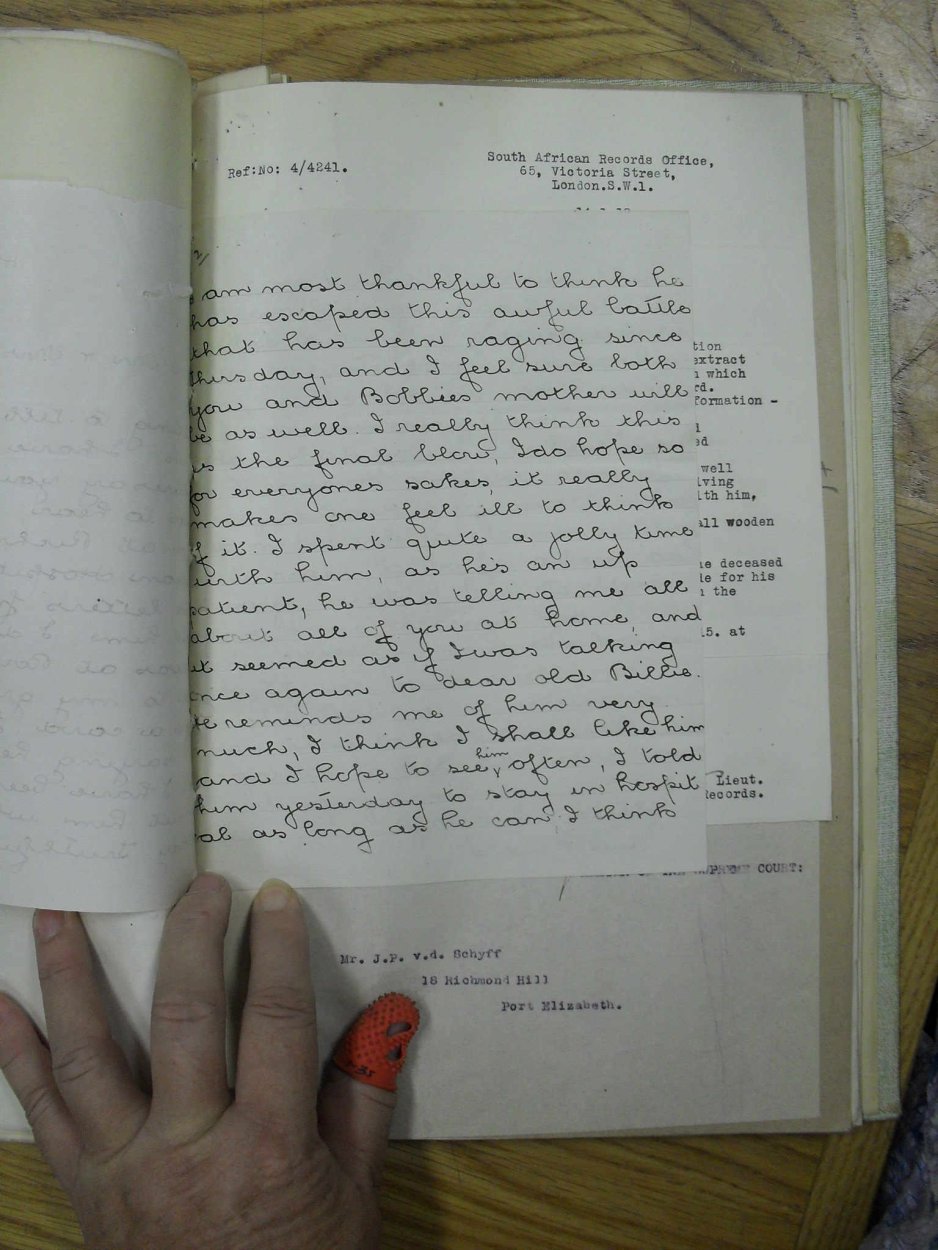 Ref:No: 4/4241.
South African Records Office,
65, Victoria Street,
London.S.W.1.
2/
am most thankful to think he
has escaped this awful battle
that has been raging since
thursday, and I feel sure both
you and Bobbies mother will
be as well. I really think this
is the final blow, I do hope so
for everyones sakes, it really
makes one feel ill to think
of it. I spent quite a jolly time
with him, as he's an up
patient, he was telling me all
about all of you at home, and
it seemed as if I was talking
once again to dear old Billie.
He reminds me of him very
much, I think I shall like him
and I hope to see him often, I told
him yesterday to stay in hospit
al as long as he can I think
tion
extract
which
rd.
formation -
ed
well
ving
ith him,
all wooden
e deceased
le for his
the
15. at
Lieut.
Records.
SUPREME COURT:
Mr. J.P. v.d. Schyff
18 Richmond Hill
Port Elizabeth.